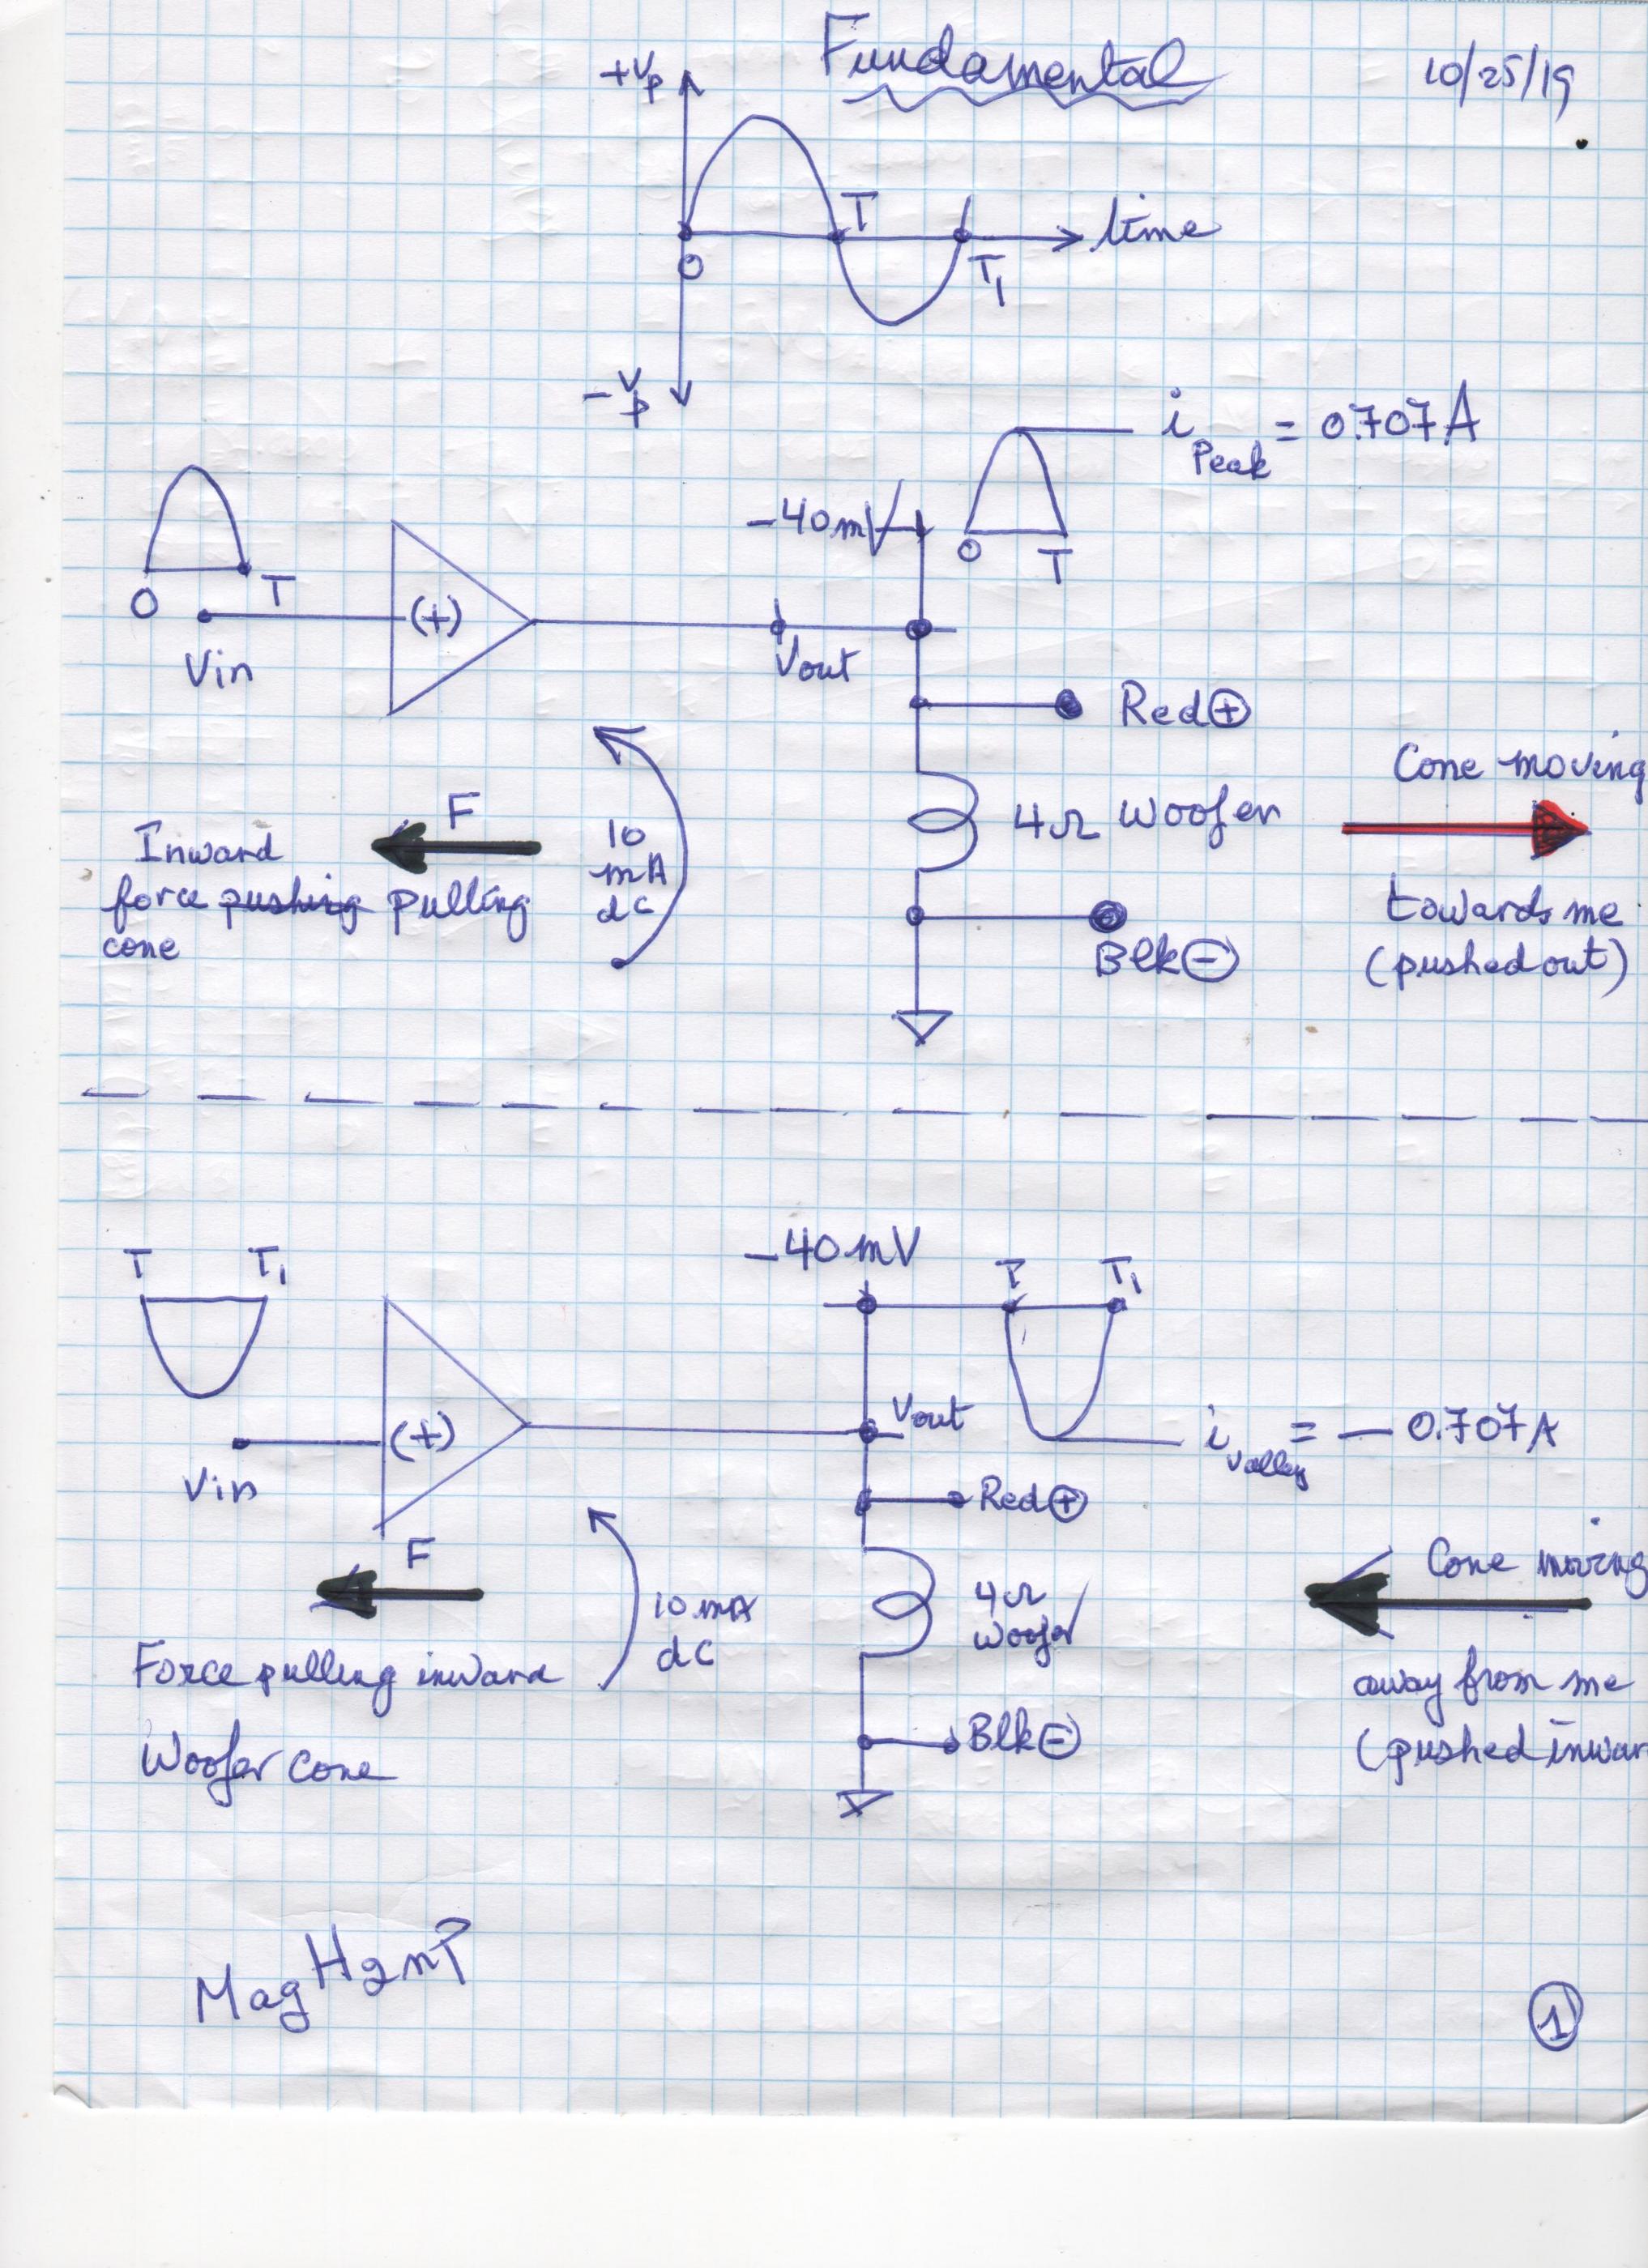 Fundamental
10/25/19
+Vp
T
time
O
T1
-Vp
i Peak = 0.707A
-40mV
O
T
O
T
(+)
Vin
Vout
Red +
Cone moving
F
10
mA
dc
4Ω Woofer
Inward
force pushing pulling
cone
towards me
(pushed out)
Blk -
-40mV
T
T1
T
T1
Vout
i valley = - 0.707A
(+)
Vin
Red +
F
Cone moving
10 mA
dC
4Ω
Woofer
Force pulling inward
Woofer Cone
away from me
(pushed inwar
Blk -
Mag
1